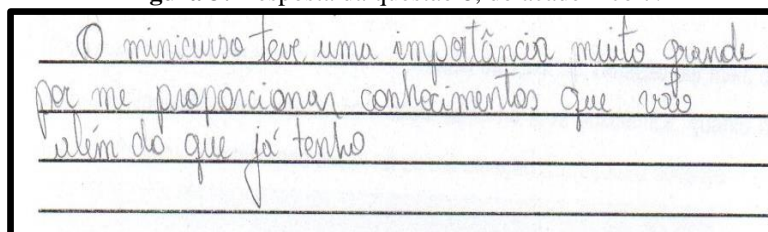 O minicurso teve uma importância muito grande
por me proporcionar conhecimentos que vão
além do que já tenho